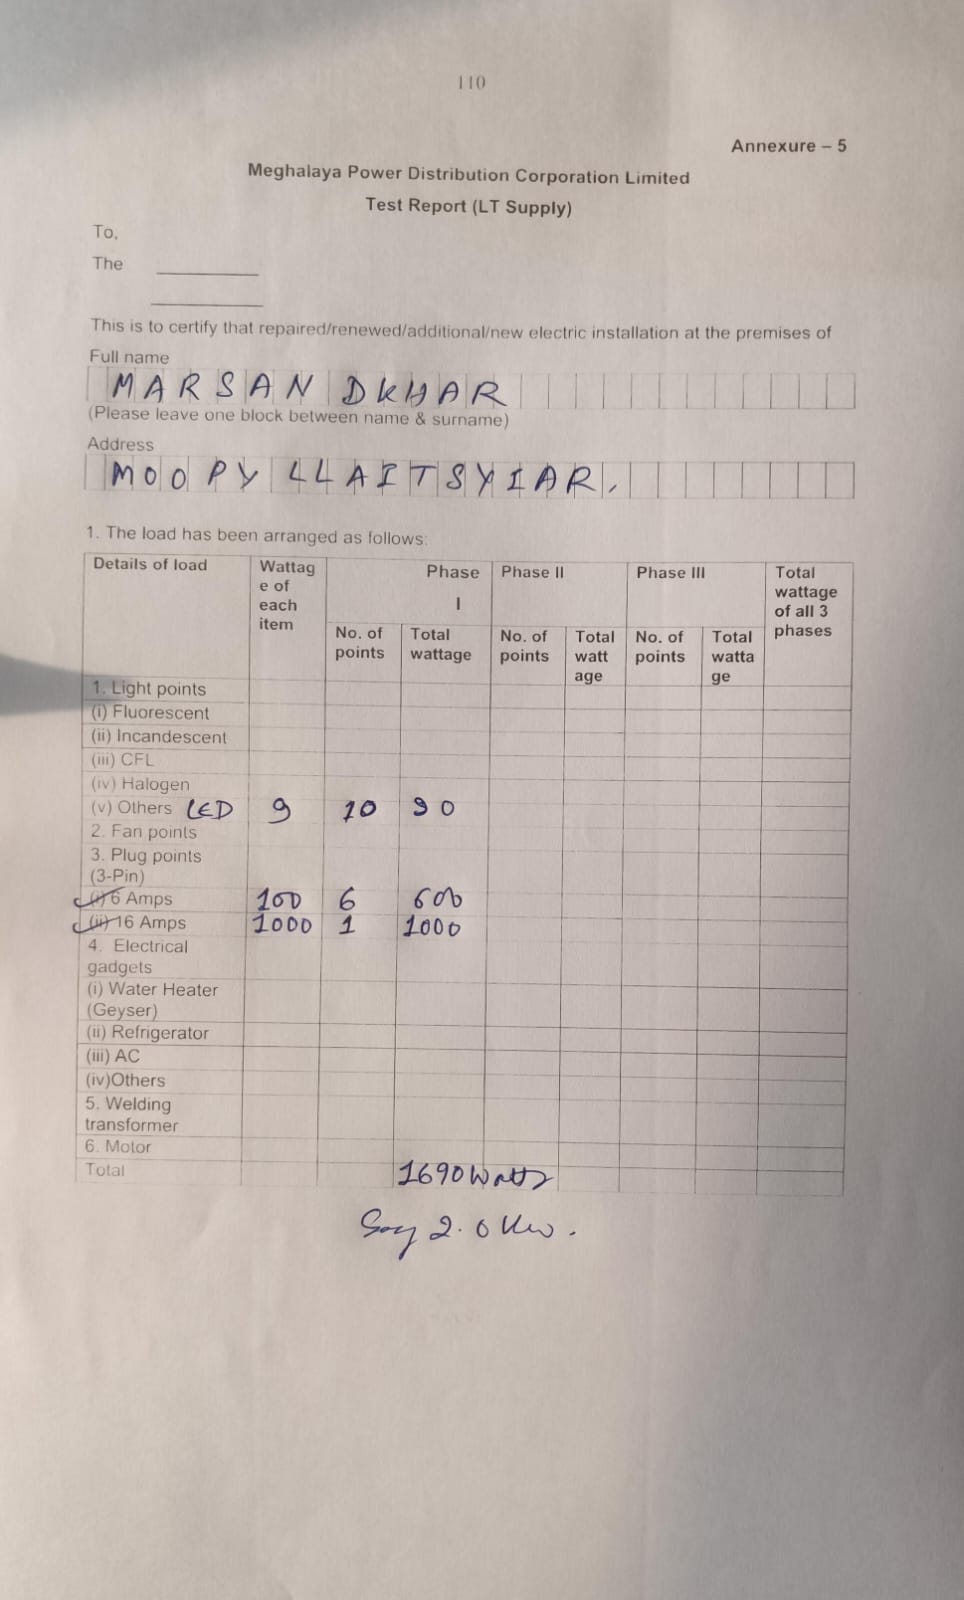 110
Annexure – 5
Meghalaya Power Distribution Corporation Limited
Test Report (LT Supply)
To,
The
This is to certify that repaired/renewed/additional/new electric installation at the premises of
Full name
MARSAN DKHAR
(Please leave one block between name & surname)
Address
MOOPYLLAITSYIAR.
1. The load has been arranged as follows:
Details of load Wattag e of each item Phase I Phase II Phase III Total wattage of all 3 phases
No. of points Total wattage No. of points Total watt age No. of points Total watta ge
1. Light points
(i) Fluorescent
(ii) Incandescent
(iii) CFL
(iv) Halogen
(v) Others LED 9 10 90
2. Fan points
3. Plug points
(3-Pin)
(i) 6 Amps 100 6 600
(ii) 16 Amps 1000 1 1000
4. Electrical
gadgets
(i) Water Heater
(Geyser)
(ii) Refrigerator
(iii) AC
(iv)Others
5. Welding
transformer
6. Motor
Total 1690 Watts
Say 2.0 Kw.